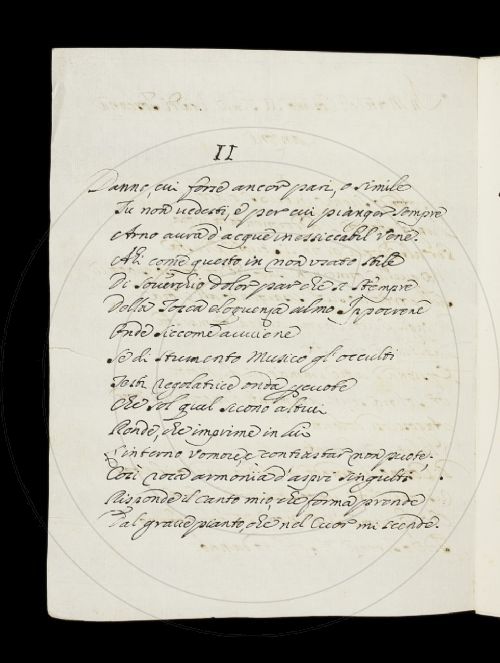 II
Danno, cui forse ancor pari, o simile
Tu non vedesti, e per cui pianger sempre
Arno aurà d'acque inessiccabil vene.
Ahi come questo in non usato stile
Di soverchio dolor par che si stempre
Della Tosca eloquenza almo Ippocrene
Onde siccome avviene
Se di strumento Musico gl'occulti
Tasti regolatrice onda percote
Che sol quel suono altrui
Rende, che imprime in lui
L'interno umore, e contrastar non puote,
Così roca armonia d'aspri singulti
Risponde il canto mio, che forma prende
Dal grave pianto, che nel Cuor mi scende.